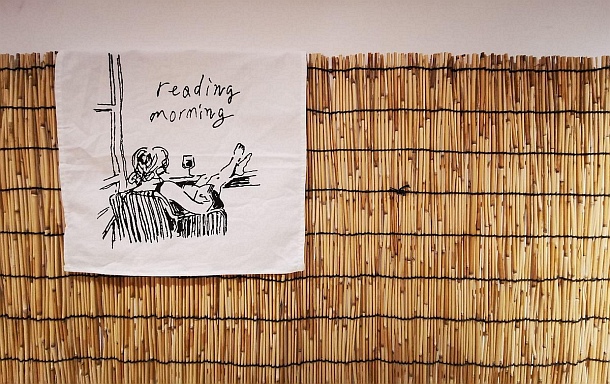 reading
morning